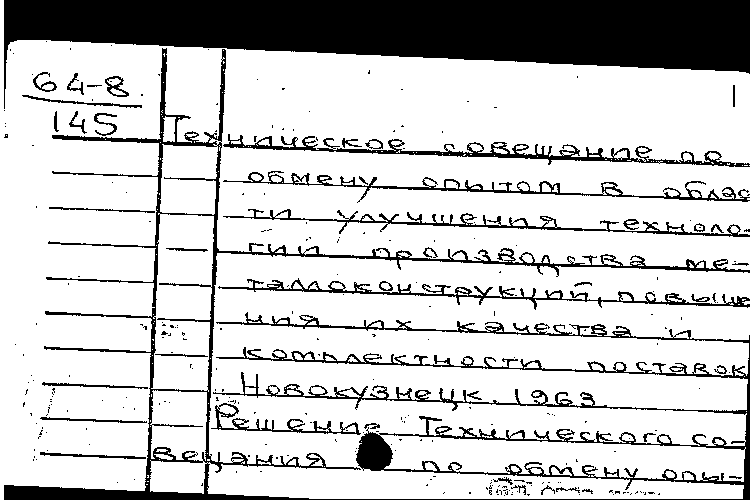 64-8
145
Техническое совещание по
обмену опытом в облас
ти улучшения техноло-
гии производства ме-
таллоконструкций, повыше
ния их качества и
комплектности поставок
Новокузнецк. 1963
Решение Технического со-
вещания по обмену опы-